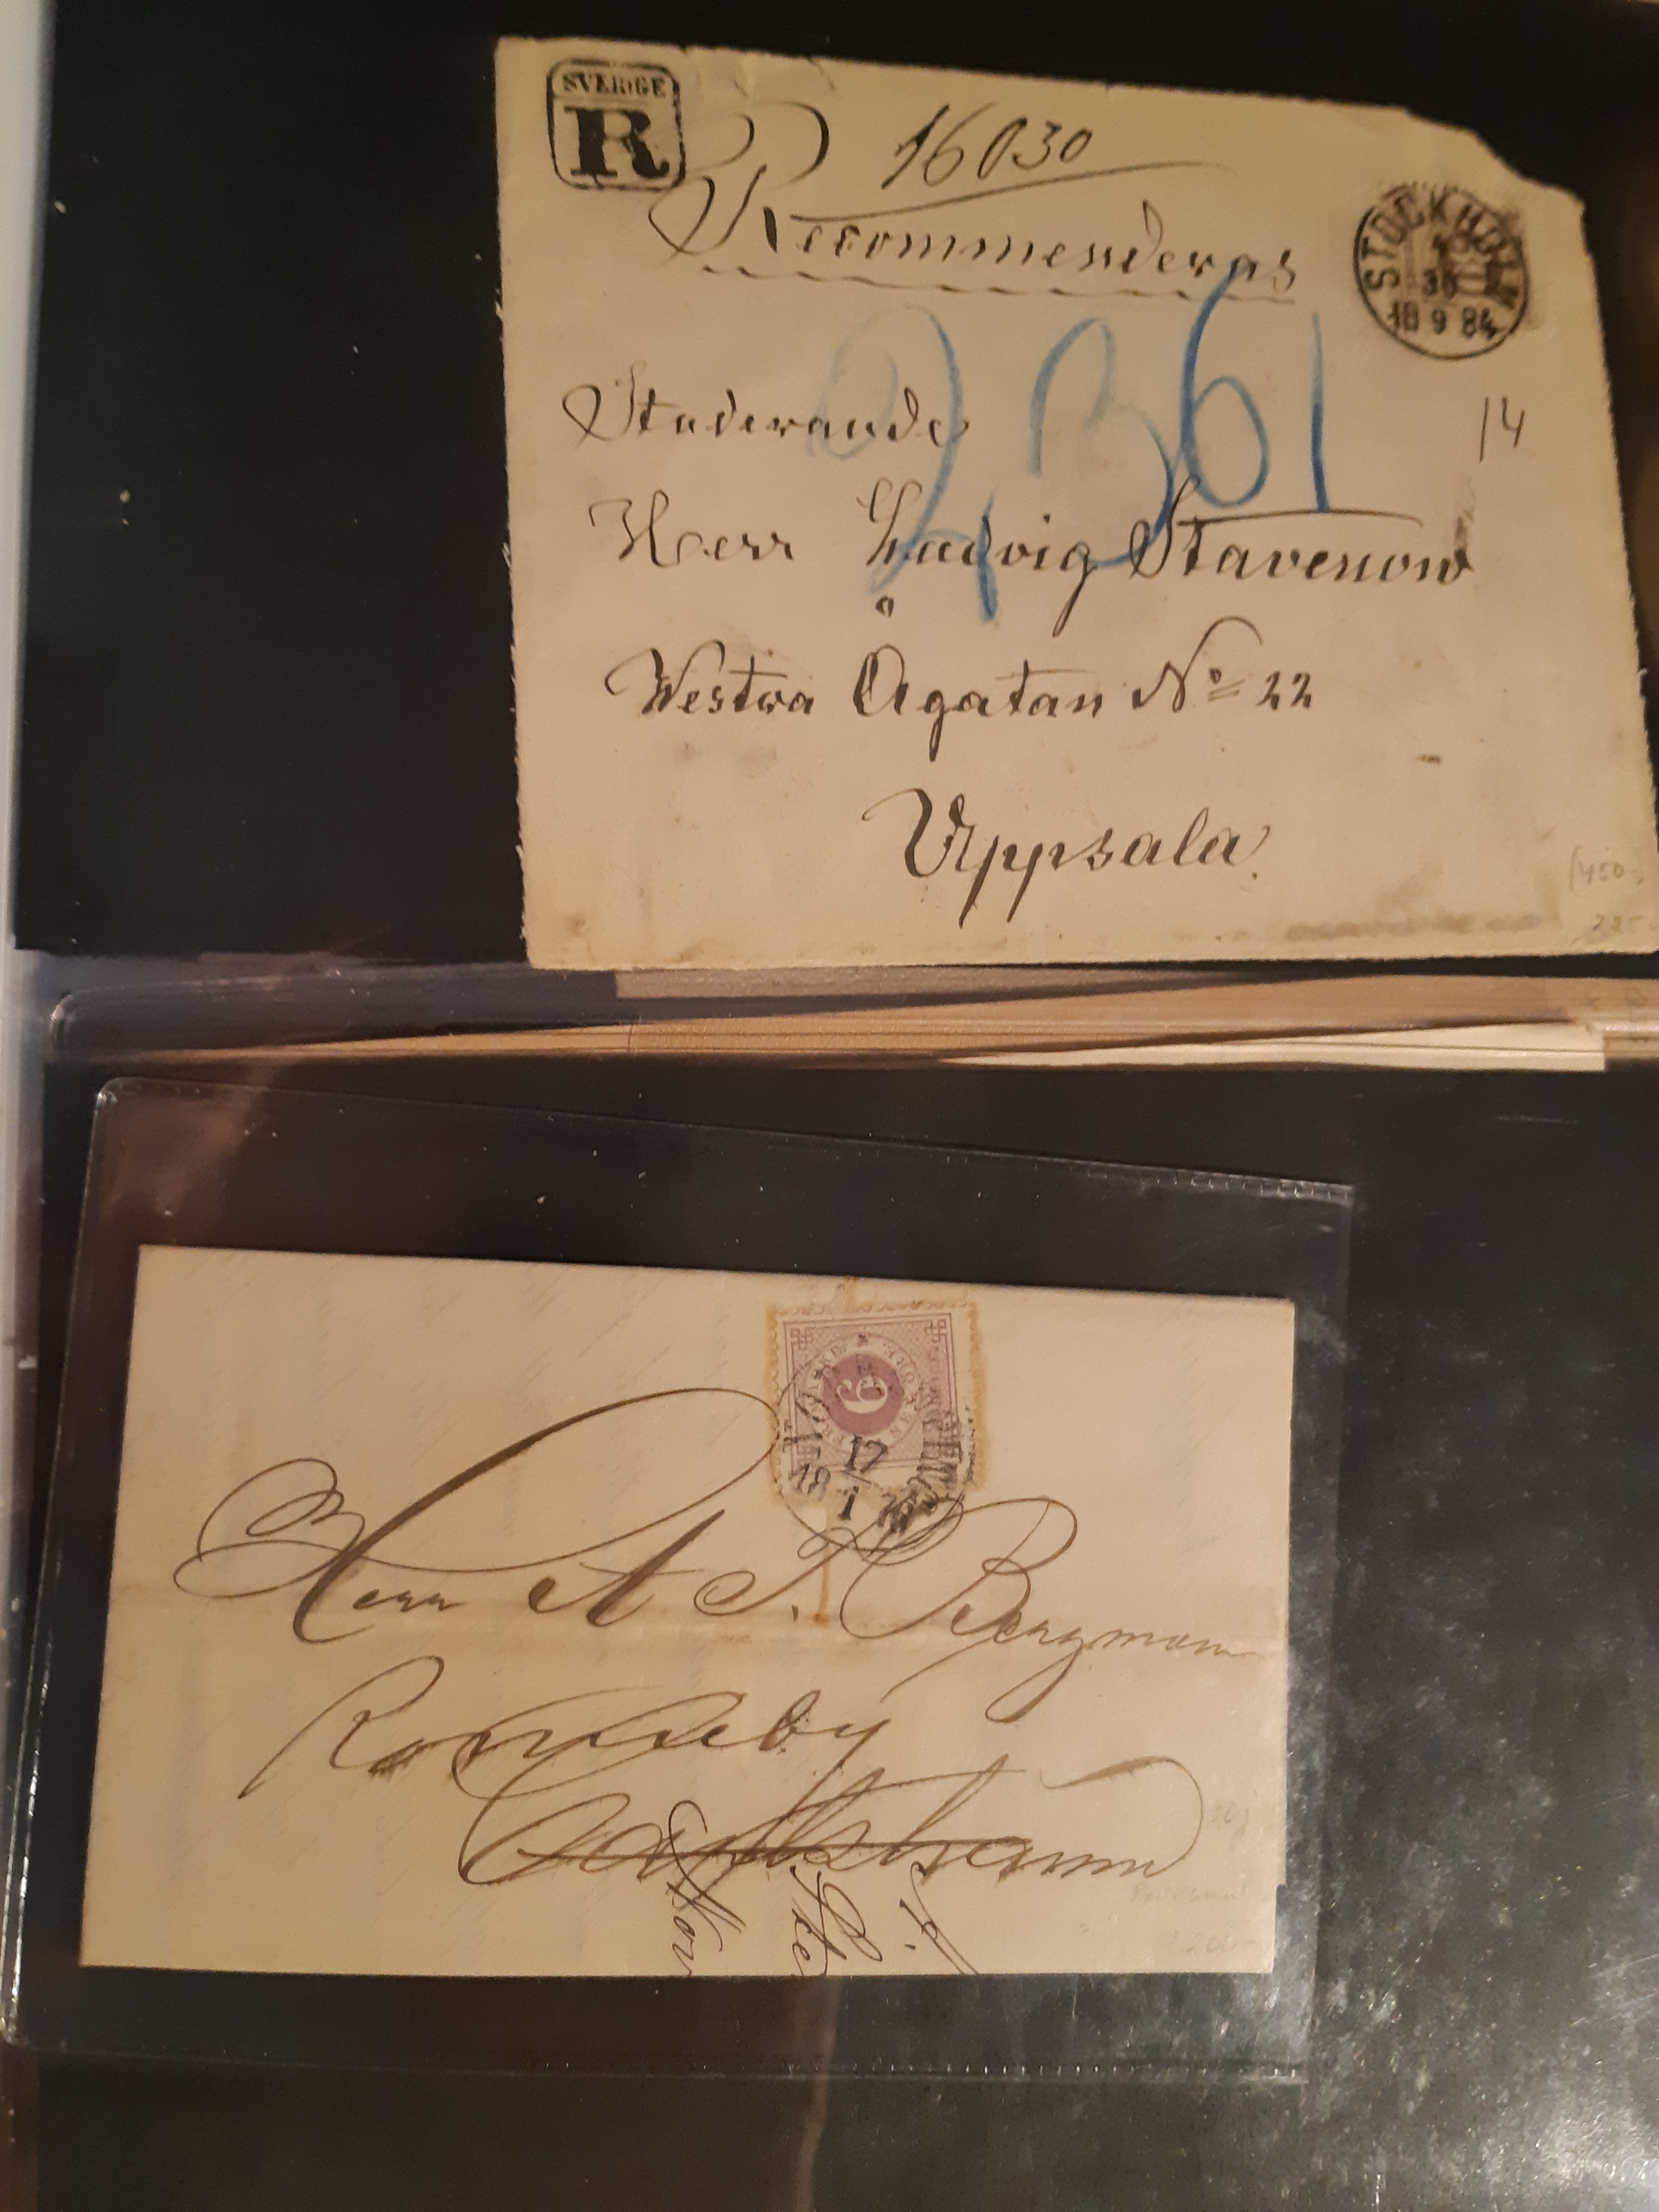 SVERIGE
R
16030
Recommenderas
STOCKHOLM
18 9 84
2,361
14
Studerande
Herr Ludvig Stavenow
Westra Ågatan No 22
Uppsala
(450-)
225-
6
17
1
Herr A P. Bergman
Ronneby
Carlshamn